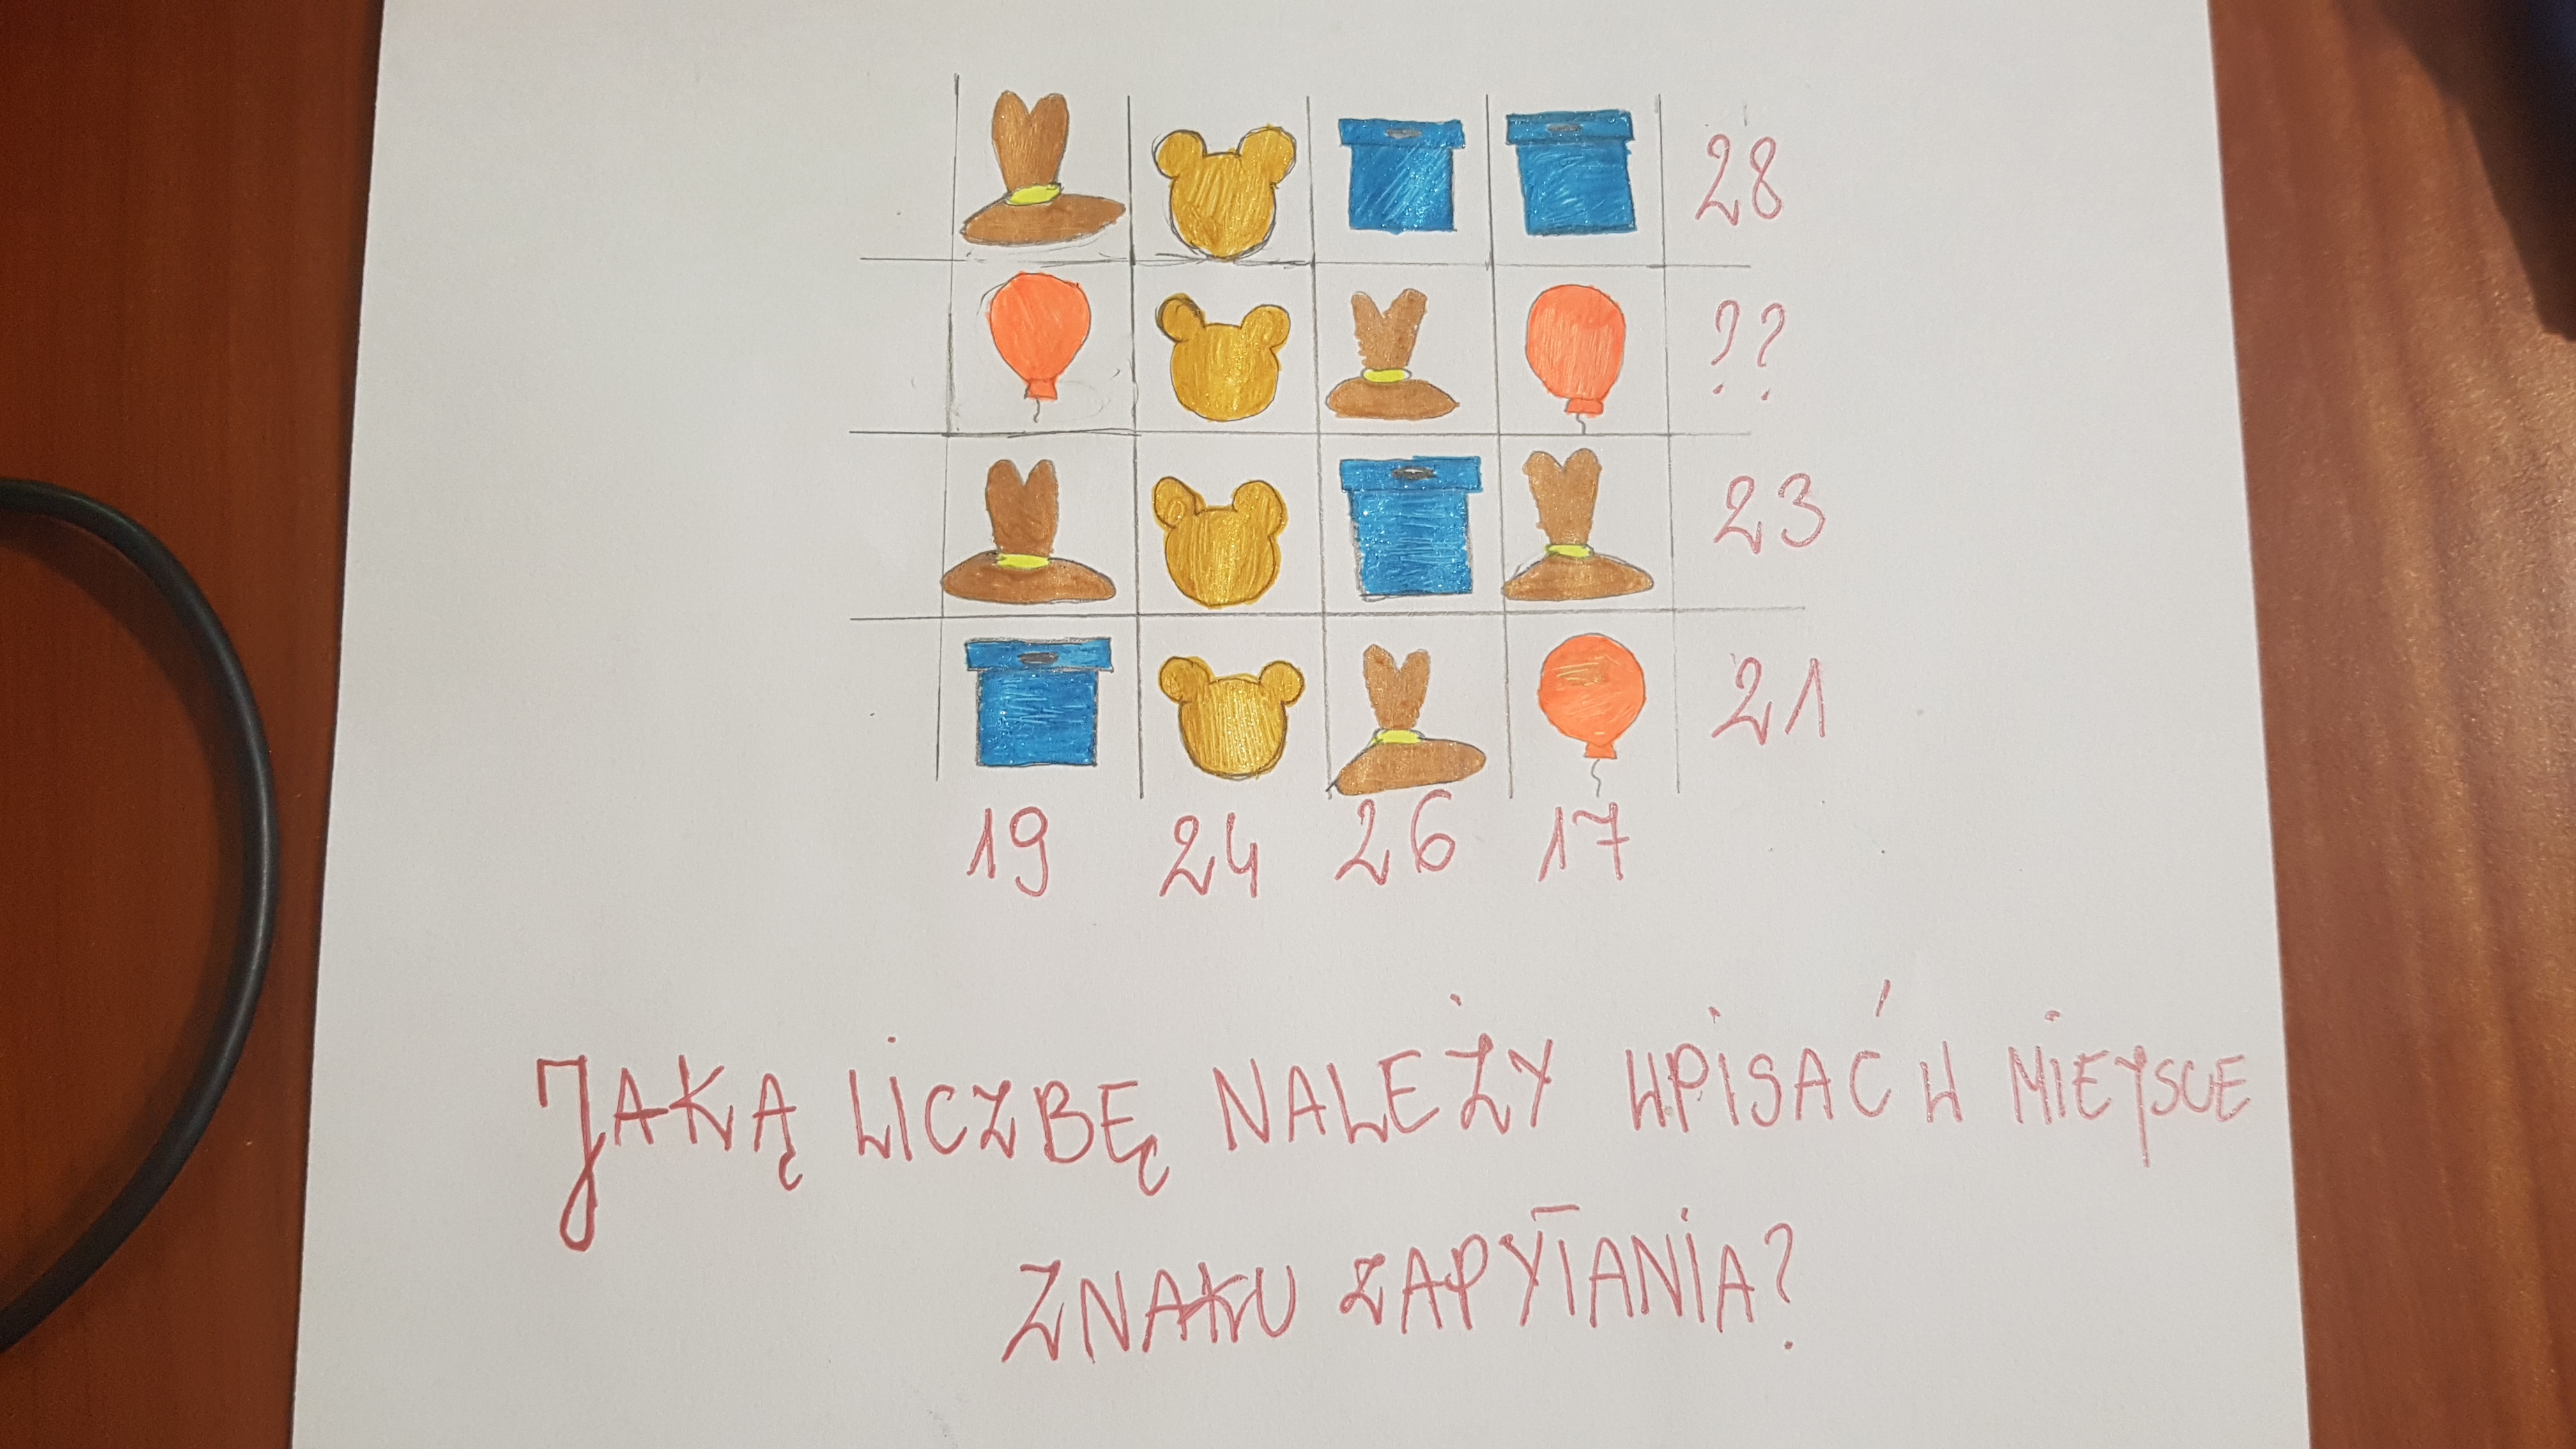 28
??
23
21
19 24 26 17
JAKĄ LICZBĘ NALEŻY WPISAĆ W MIEJSCE
ZNAKU ZAPYTANIA?